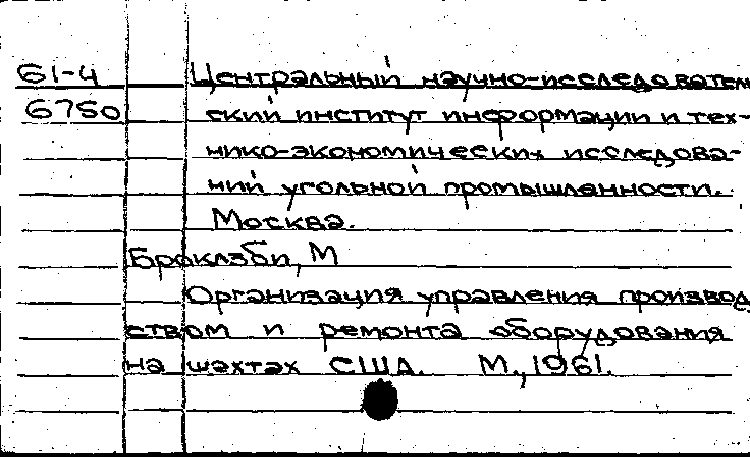 61-4 Центральный научно-исследователь
6750 ский институт информации и тех-
нико-экономических исследова-
ний угольной промышленности.
Москва.
Браклзби, М
Организация управления производ
ством и ремонта оборудования
на шахтах США. М., 1961.